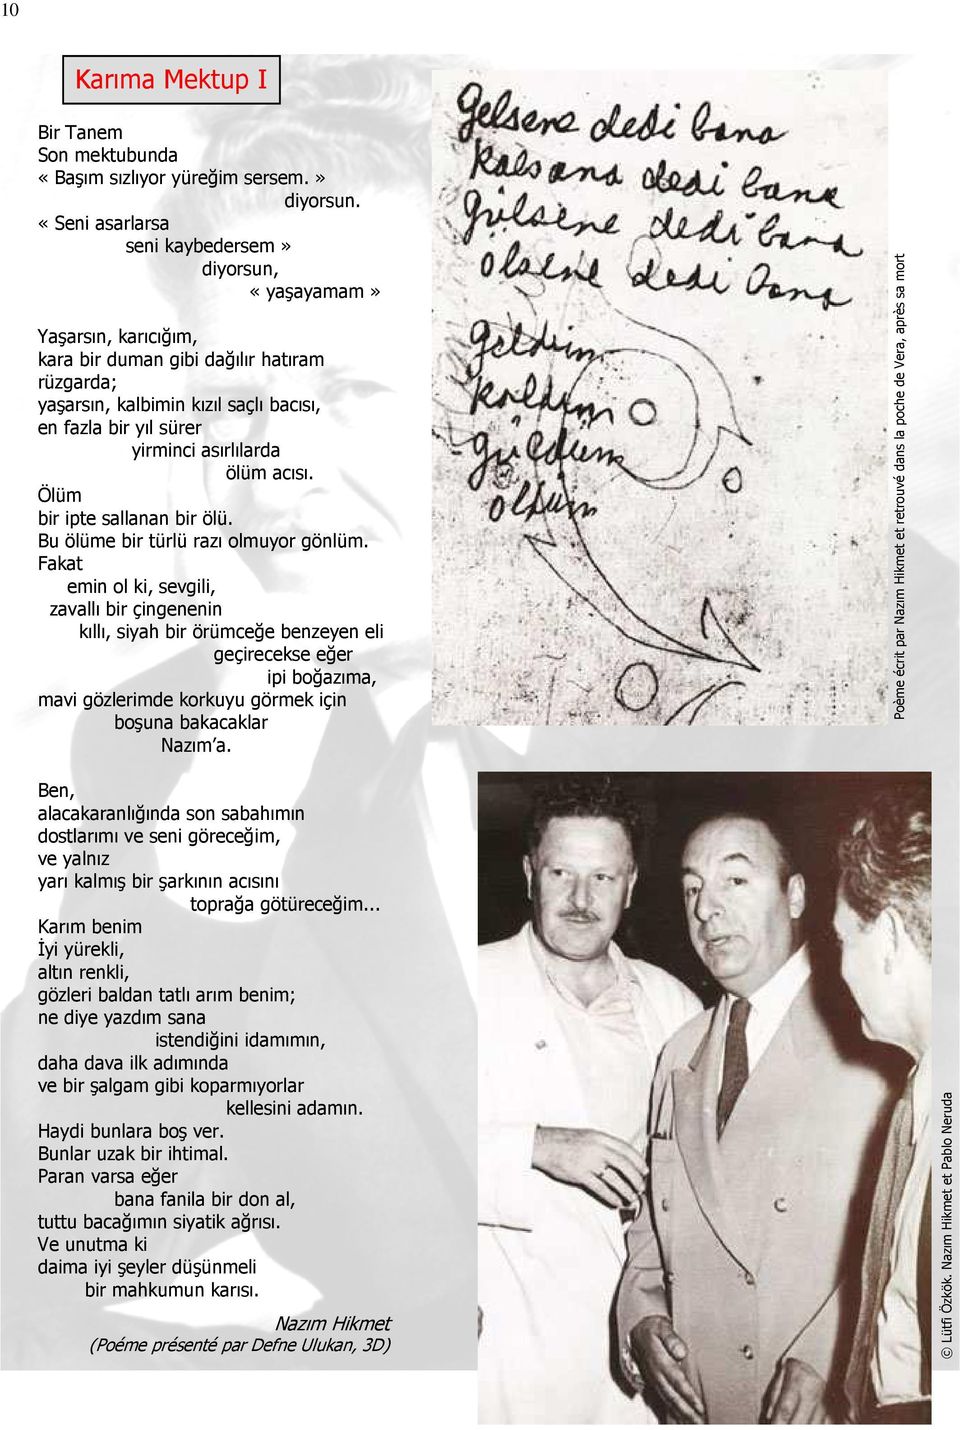 10
Karıma Mektup I
Bir Tanem
Son mektubunda
«Başım sızlıyor yüreğim sersem. »
diyorsun.
«Seni asarlarsa
seni kaybedersem »
diyorsun,
«yaşayamam »
Yaşarsın, karıcığım,
kara bir duman gibi dağılır hatıram
rüzgarda;
yaşarsın, kalbimin kızıl saçlı bacısı,
en fazla bir yıl sürer
yirminci asırlılarda
ölüm acısı.
Ölüm
bir ipte sallanan bir ölü.
Bu ölüme bir türlü razı olmuyor gönlüm.
Fakat
emin ol ki, sevgili,
zavallı bir çingenenin
kıllı, siyah bir örümceğe benzeyen eli
geçirecekse eğer
ipi boğazıma,
mavi gözlerimde korkuyu görmek için
boşuna bakacaklar
Nazım’a.
Ben,
alacakaranlığında son sabahımın
dostlarımı ve seni göreceğim,
ve yalnız
yarı kalmış bir şarkının acısını
toprağa götüreceğim...
Karım benim
İyi yürekli,
altın renkli,
gözleri baldan tatlı arım benim;
ne diye yazdım sana
istendiğini idamımın,
daha dava ilk adımında
ve bir şalgam gibi koparmıyorlar
kellesini adamın.
Haydi bunlara boş ver.
Bunlar uzak bir ihtimal.
Paran varsa eğer
bana fanila bir don al,
tuttu bacağımın siyatik ağrısı.
Ve unutma ki
daima iyi şeyler düşünmeli
bir mahkumun karısı.
Nazım Hikmet
(Poéme présenté par Defne Ulukan, 3D)
Gelsene dedi bana
kalsana dedi bana
Gülsene dedi bana
ölsene dedi bana
Geldim
kaldım
güldüm
öldüm
Poème écrit par Nazım Hikmet et retrouvé dans la poche de Vera, après sa mort
© Lütfi Özkök. Nazım Hikmet et Pablo Neruda